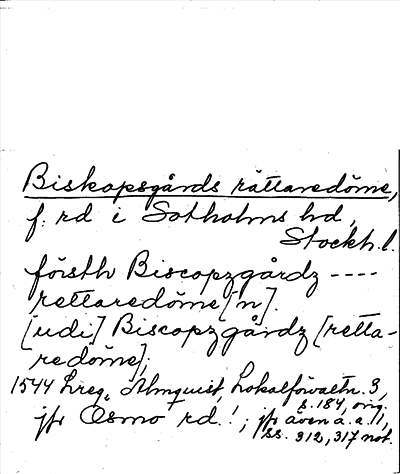 Biskopsgårds rättaredöme,
f. rd i Sotholms hd,
Stockh. l.
försth Biscopzgårdz ----
rettaredöme[n].
[udi] Biscopzgårdz [retta-
redöme],
1544 Lreg, Almquist, Lokalförvaltn. 3,
s. 184, orig.
jfr Ösmo rd.!; jfr även a.a. 1,
ss. 312, 317 not.